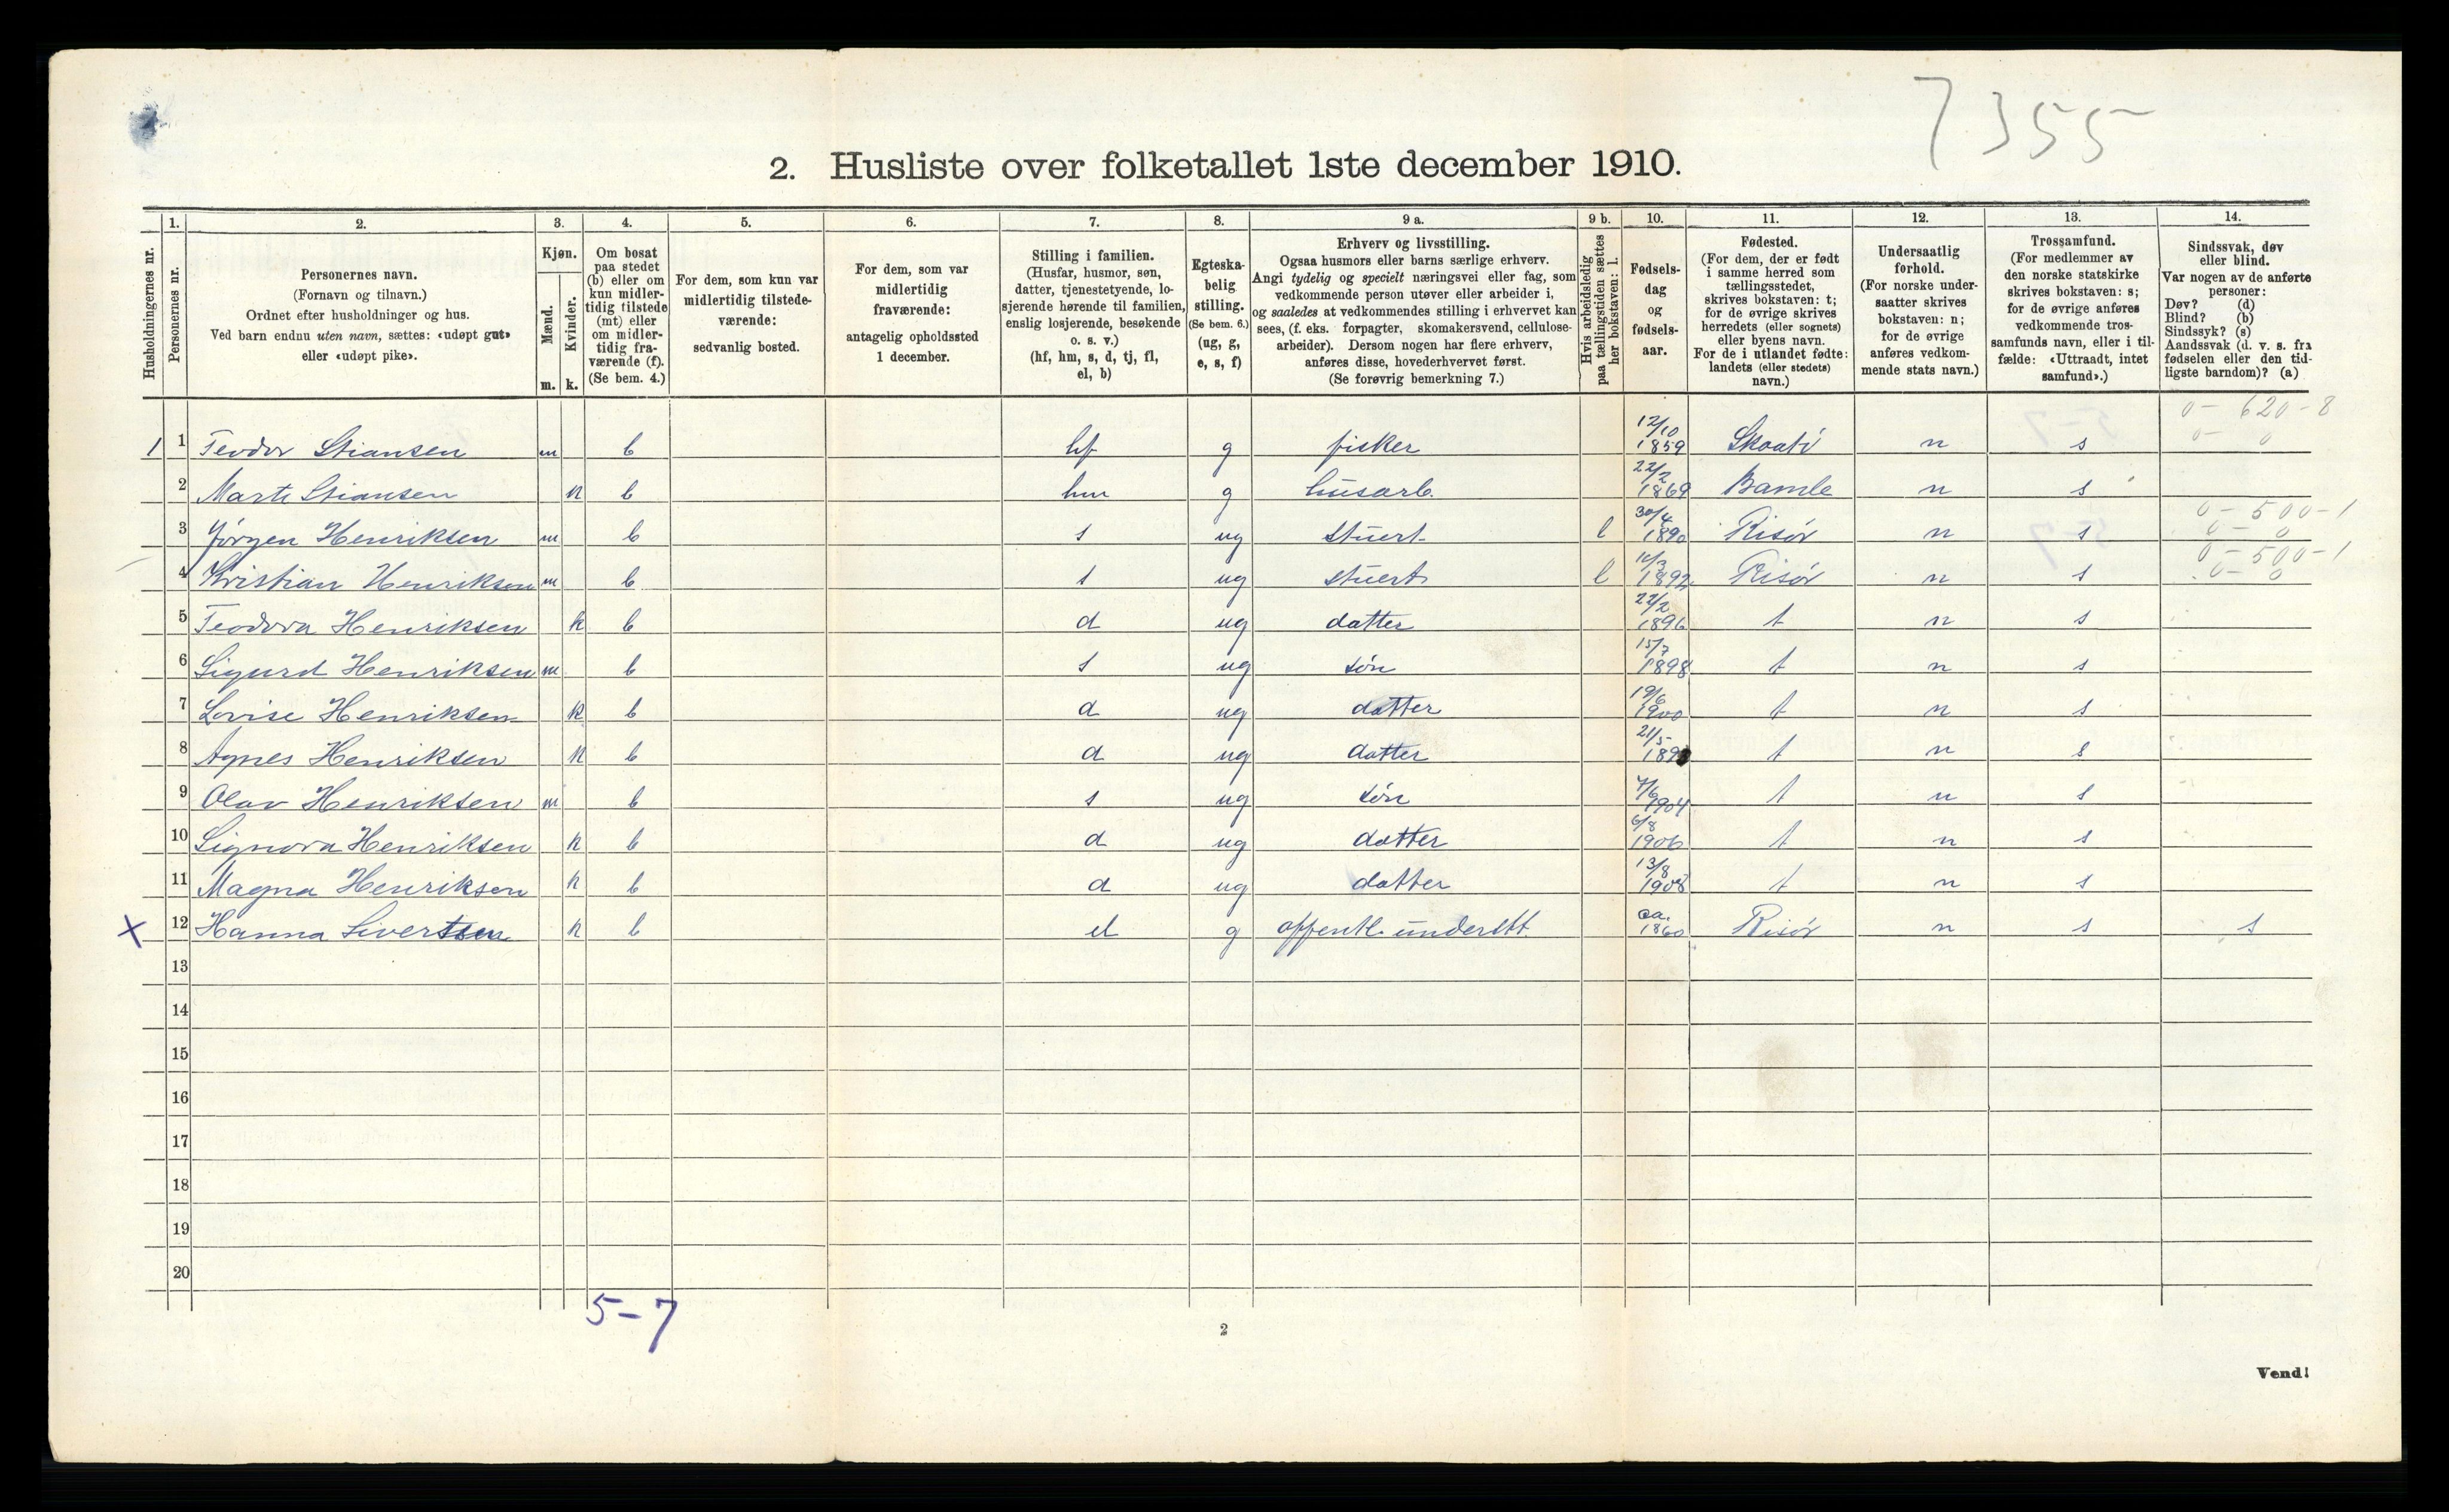 7355
2. Husliste over folketallet 1ste december 1910.
Husholdningernes nr.
1. Personernes nr.
2. Personernes navn. (Fornavn og tilnavn.) Ordnet efter husholdninger og hus. Ved barn endnu uten navn, sættes: «udøpt gut» eller «udøpt pike».
3. Kjøn. Mænd. m. Kvinder. k.
4. Om bosat paa stedet (b) eller om kun midler-tidig tilstede (mt) eller om midler-tidig fra-værende (f). (Se bem. 4.)
5. For dem, som kun var midlertidig tilstede-værende: sedvanlig bosted.
6. For dem, som var midlertidig fraværende: antagelig opholdssted 1 december.
7. Stilling i familien. (Husfar, husmor, søn, datter, tjenestetyende, lo-sjerende hørende til familien, enslig losjerende, besøkende o. s. v.) (hf, hm, s, d, tj, fl, el, b)
8. Egteska-belig stilling. (Se bem. 6.) (ug, g, e, s, f)
9 a. Erhverv og livsstilling. Ogsaa husmors eller barns særlige erhverv. Angi tydelig og specielt næringsvei eller fag, som vedkommende person utøver eller arbeider i, og saaledes at vedkommendes stilling i erhvervet kan sees, (f. eks. forpagter, skomakersvend, cellulose-arbeider). Dersom nogen har flere erhverv, anføres disse, hovederhvervet først. (Se forøvrig bemerkning 7.)
9 b. Hvis arbeidsledig paa tællingstiden sættes her bokstaven: l.
10. Fødsels-dag og fødsels-aar.
11. Fødested. (For dem, der er født i samme herred som tællingsstedet, skrives bokstaven: t; for de øvrige skrives herredets (eller sognets) eller byens navn. For de i utlandet fødte: landets (eller stedets) navn.)
12. Undersaatlig forhold. (For norske under-saatter skrives bokstaven: n; for de øvrige anføres vedkom-mende stats navn.)
13. Trossamfund. (For medlemmer av den norske statskirke skrives bokstaven: s; for de øvrige anføres vedkommende tros-samfunds navn, eller i til-fælde: «Uttraadt, intet samfund».)
14. Sindssvak, døv eller blind. Var nogen av de anførte personer: Døv? (d) Blind? (b) Sindssyk? (s) Aandssvak (d. v. s. fra fødselen eller den tid-ligste barndom)? (a)
0 - 620 - 8
1 1 Teodor Stiansen m b hf g fisker 12/10 1859 Skaatö n s 0 - 0
2 Marte Stiansen k b hm g husarb. 22/2 1869 Bamle n s
0 - 500 - 1
3 Jörgen Henriksen m b s ug stuert l 30/4 1890 Risör n s 0 - 0
0 - 500 - 1
4 Kristian Henriksen m b s ug stuert l 1892 Risör n s 0 - 0
5 Teodora Henriksen k b d ug datter 22/2 1896 t n s
6 Sigurd Henriksen m b s ug sön 15/7 1898 t n s
7 Lovise Henriksen k b d ug datter 19/6 1900 t n s
8 Agnes Henriksen k b d ug datter 21/5 t n s
9 Olav Henriksen m b s ug sön 7/6 1904 t n s
10 Signora Henriksen k b d ug datter 6/8 1906 t n s
11 Magna Henriksen k b d ug datter 13/8 1908 t n s
x 12 Hanna Sivertsen k b el g offentl. understt. ca. 1860 Risör n s s
13
14
15
16
17
18
19
20
5-7
2
Vend!